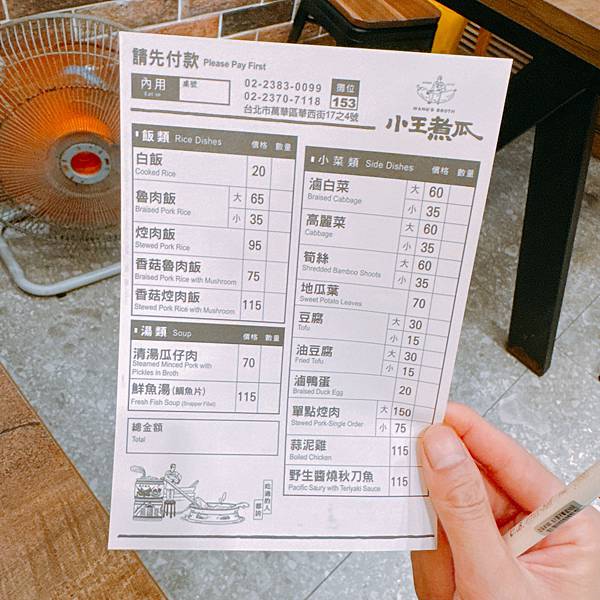 請先付款 Please Pay First
內用 桌號
Eat in
02-2383-0099
02-2370-7118
攤位
153
台北市萬華區華西街17之4號
WANG'S BROTH
小王煮瓜
飯類 Rice Dishes 價格 數量
白飯 20
Cooked Rice
魯肉飯 大 65
Braised Pork Rice 小 35
焢肉飯 95
Stewed Pork Rice
香菇魯肉飯 75
Braised Pork Rice with Mushroom
香菇焢肉飯 115
Stewed Pork Rice with Mushroom
湯類 Soup 價格 數量
清湯瓜仔肉 70
Steamed Minced Pork with
Pickles in Broth
鮮魚湯(鯛魚片) 115
Fresh Fish Soup (Snapper Fillet)
總金額
Total
吃過的人
都說
小菜類 Side Dishes 價格 數量
滷白菜 大 60
Braised Cabbage 小 35
高麗菜 大 60
Cabbage 小 35
筍絲 大 60
Shredded Bamboo Shoots 小 35
地瓜葉 70
Sweet Potato Leaves
豆腐 大 30
Tofu 小 15
油豆腐 大 30
Fried Tofu 小 15
滷鴨蛋 20
Braised Duck Egg
單點焢肉 大 150
Stewed Pork-Single Order 小 75
蒜泥雞 115
Boiled Chicken
野生醬燒秋刀魚 115
Pacific Saury with Teriyaki Sauce